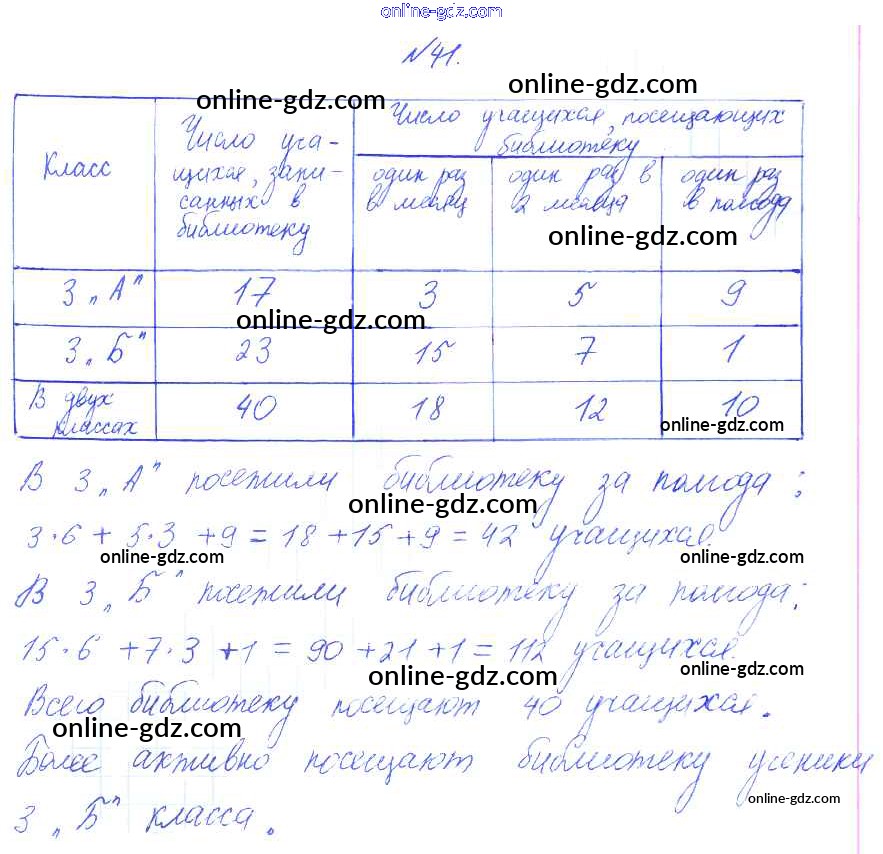 online-gdz.com
№41.
online-gdz.com
online-gdz.com
Класс
Число уча-
щихся, запи-
санных в
библиотеку
Число учащихся, посещающих
библиотеку
один раз
в месяц
один раз в
2 месяца
один раз
в полгода
online-gdz.com
3 „А" 17 3 5 9
online-gdz.com
3 „Б" 23 15 7 1
В двух
классах
40 18 12 10
online-gdz.com
В 3 „А" посетили библиотеку за полгода:
online-gdz.com
3·6 + 5·3 + 9 = 18 + 15 + 9 = 42 учащихся.
online-gdz.com online-gdz.com
В 3 „Б" посетили библиотеку за полгода:
15·6 + 7·3 + 1 = 90 + 21 + 1 = 112 учащихся.
online-gdz.com online-gdz.com
Всего библиотеку посещают 40 учащихся.
online-gdz.com
Более активно посещают библиотеку ученики
online-gdz.com
3 „Б" класса.